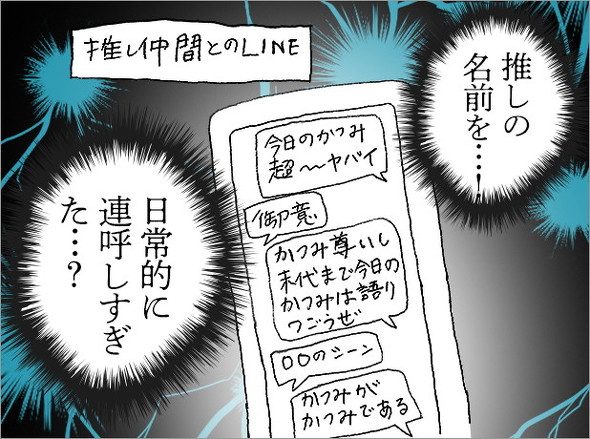 推し仲間とのLINE
推しの
名前を…!
今日のかつみ
超〜〜ヤバイ
御意
かつみ尊いし
末代まで今日の
かつみは語り
つごうぜ
○○のシーン
かつみが
かつみである
日常的に
連呼しすぎ
た…?